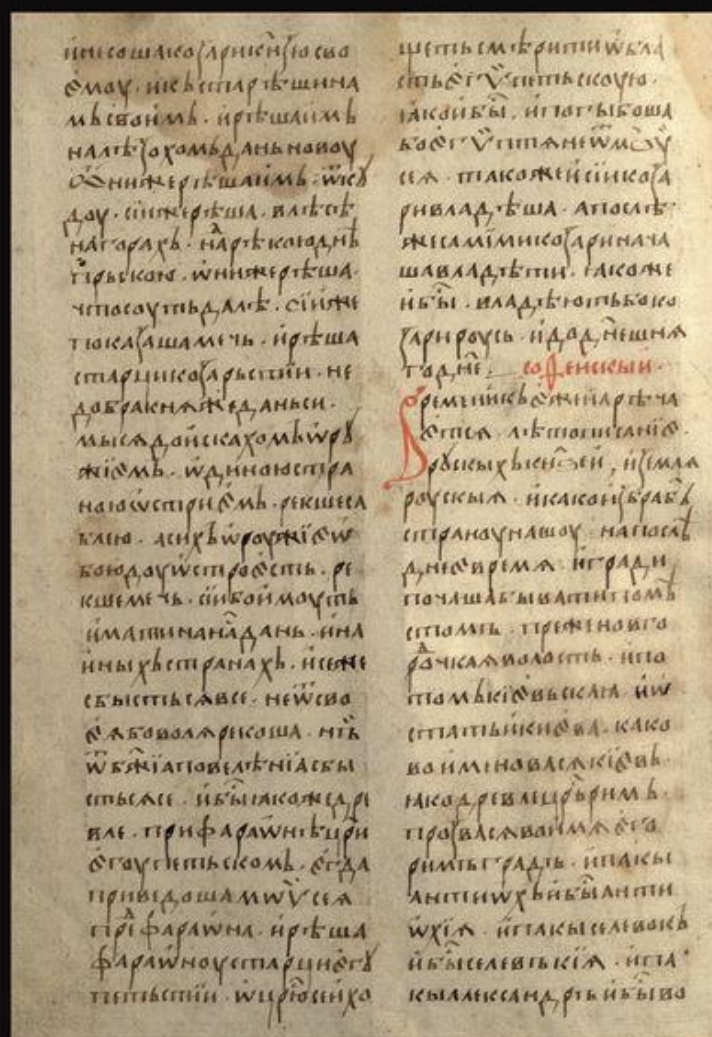 и҆несоша козари кн҃зю сво
є҆моу . и҆ къ старѣшина
мъ своимъ . и҆ рѣша имъ
налѣзохомъ дань новоу
Ѻ҆ни же рѣша имъ . ѿкꙋ
доу . сїи же рѣша . в лѣсѣ
на горахъ . на рѣкою днѣ
прьскою . ѡ҆ни же рѣша
что соуть далѣ . сїи же
показаша мечь . и҆ рѣша
старци козарьстїи . не
добра кнѧже дань си .
мы сѧ до и҆скахомъ ѡ҆рꙋ
жїемъ . ѡ҆диною стра
ною ѡ҆стримъ . рекше са
блею . а сихъ ѡ҆роужїе ѡ҆
боюдоу ѡ҆стро є҆сть . ре
кше мечь . сїи бо и҆моуть
и҆мати на на дань . и҆ на
и҆ныхъ странахъ . и҆ се же
сбысть сѧ все . не ѿ сво
є҆ѧ бо волѧ рекоша . нъ
ѿ бж҃їа повелѣнїа сбы
сть сѧ се . и҆ бы ꙗко же дре
вле . при фараѡнѣ цр҃и
є҆гоупетьскомъ . є҆гда
приведоша мѡѷсеѧ
прⷣе фараѡна . и҆ рѣша
фараѡноу старци є҆гꙋ
петьстїи . ѡ҆ цр҃ю сей хо
щеть смѣрити ѡ҆бла
сть є҆гѷпетьскоую .
ꙗко и҆ бы . и҆ погыбоша
бо є҆гѷптѧне ѿ мѡѷ
сеѧ . тако же и҆ сїи коза
ри владѣша . а послѣ
же самѣми козари нача
ша владѣти . ꙗко же
и҆ бы . владѣють бо ко
зари роусь . и҆ до днешнѧ
го дне . софенскыи .
Временикъ є҆же нарѣча
є҆тсѧ лѣтописанїе .
рꙋскыхъ кнѧзей , и҆ землѧ
роускыѧ . и҆ како и҆збра бъ
страноу нашоу на послѣ
днее времѧ . и҆ гради
почаша бывати по мѣ
стомъ . преже новго
рочкаѧ волость . и҆ по
томъ кїевьскаꙗ . и҆ ѡ҆
статьи киева . како
во и҆менова сѧ кїевъ .
ꙗко древле цр҃ь римъ .
прозва сѧ во и҆мѧ є҆го
римъ градъ . и҆ пакы
антиѡхъ и҆ бы анти
ѡхїѧ . и҆ пакы селевокъ
и҆ бы селевъкїѧ . и҆ па
кы александръ и҆ бы во